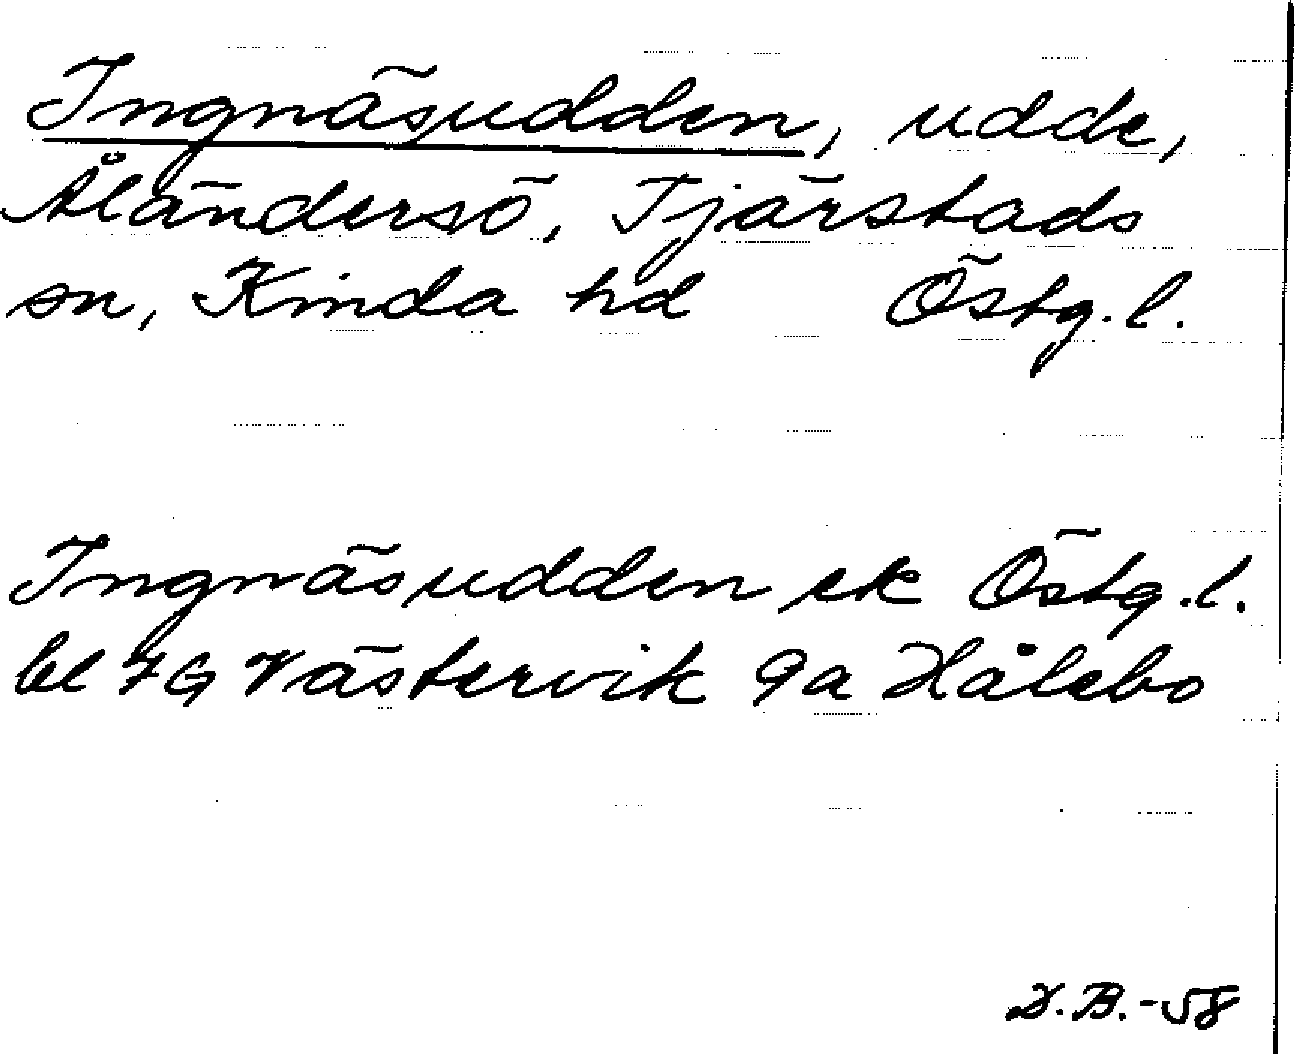 Ingnäsudden, udde,
Åländersö, Tjärstads
sn, Kinda hd Östg. l.
Ingnäsudden ek Östg. l.
bl 7G Västervik 9a Hålebo
D.B.-58